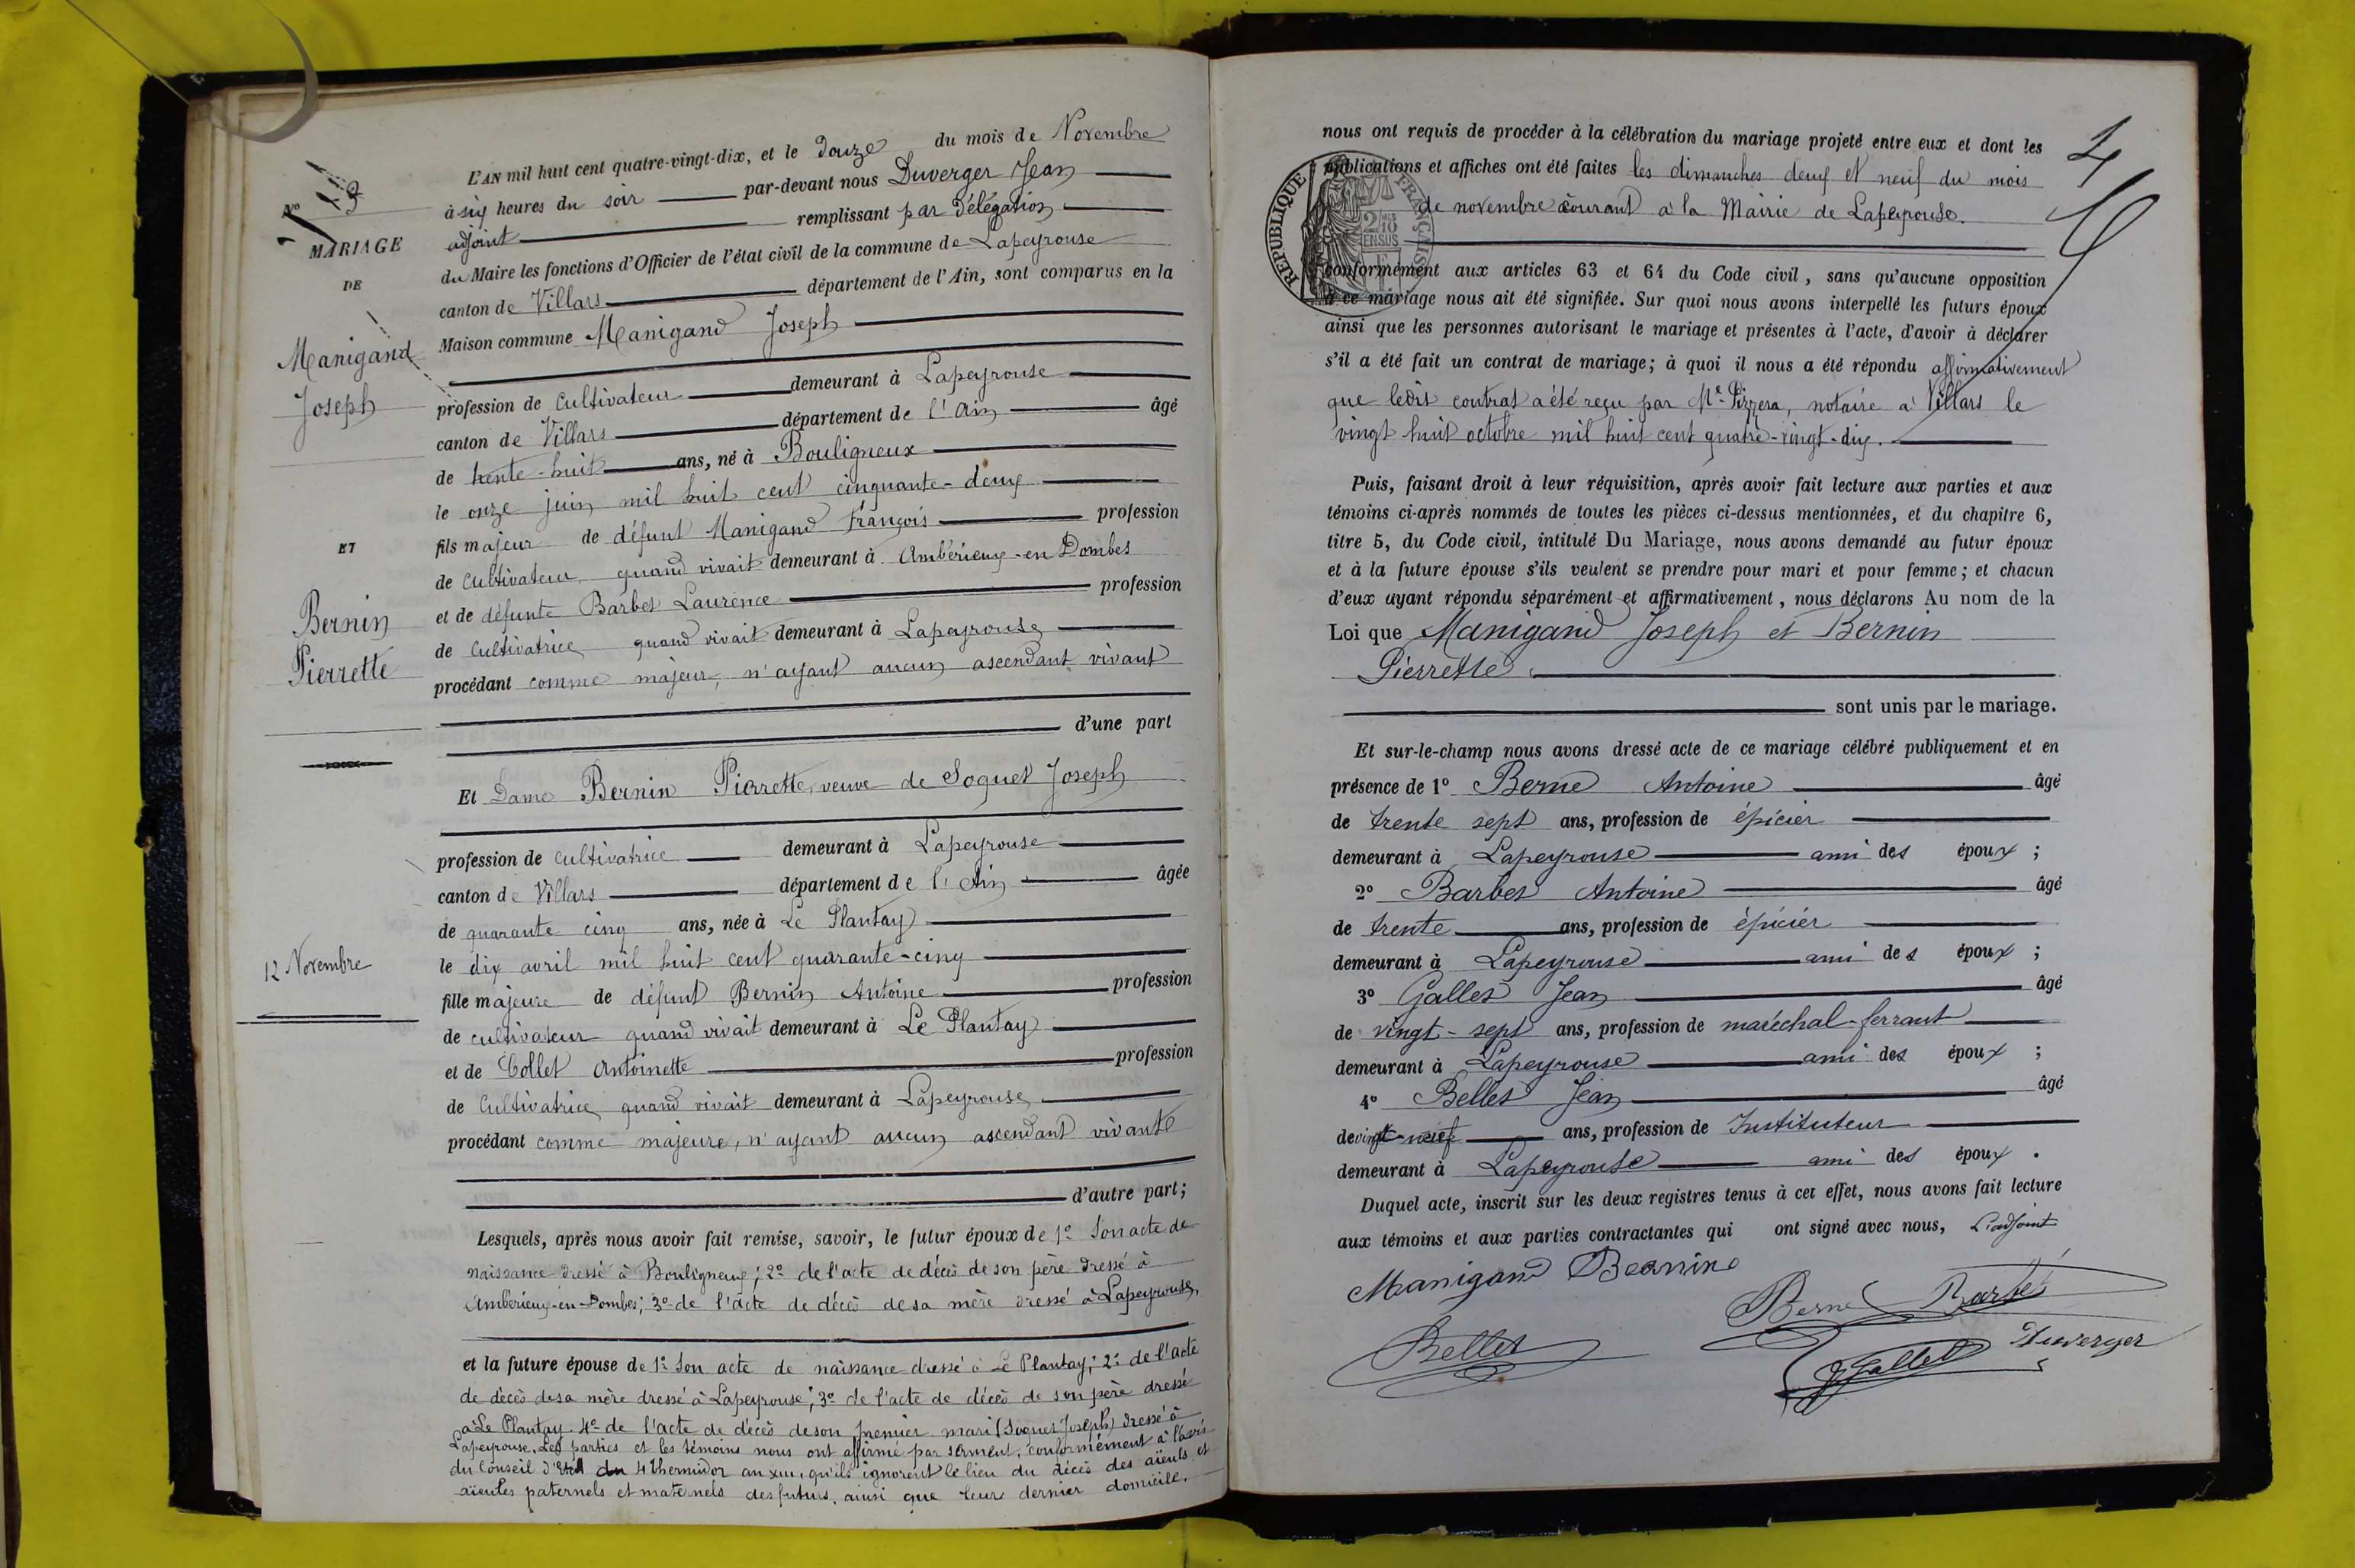 L'AN mil huit cent quatre-vingt-dix, et le douze du mois de Novembre
à six heures du soir par-devant nous Duverger Jean
adjoint remplissant par délégation
du Maire les fonctions d'Officier de l'état civil de la commune de Lapeyrouse
canton de Villars département de l'Ain, sont comparus en la
Maison commune Manigand Joseph
profession de cultivateur demeurant à Lapeyrouse
canton de Villars département de l'Ain âgé
de trente-huit ans, né à Bouligneux
le onze juin mil huit cent cinquante-deux
fils majeur de défunt Manigand François profession
de cultivateur quand vivait demeurant à Ambérieux-en-Dombes
et de défunte Barbet Laurence profession
de cultivatrice quand vivait demeurant à Lapeyrouse
procédant comme majeur, n'ayant aucun ascendant vivant
d'une part
Et Dame Bernin Pierrette, veuve de Soquet Joseph
profession de cultivatrice demeurant à Lapeyrouse
canton de Villars département de l'Ain âgée
de quarante cinq ans, née à Le Plantay
le dix avril mil huit cent quarante-cinq
fille majeure de défunt Bernin Antoine profession
de cultivateur quand vivait demeurant à Le Plantay
et de Collet Antoinette profession
de cultivatrice quand vivait demeurant à Lapeyrouse
procédant comme majeure, n'ayant aucun ascendant vivant
d'autre part;
Lesquels, après nous avoir fait remise, savoir, le futur époux de 1º Son acte de
naissance dressé à Bouligneux; 2º de l'acte de décès de son père dressé à
Ambérieux-en-Dombes; 3º de l'acte de décès de sa mère dressé à Lapeyrouse,
et la future épouse de 1º Son acte de naissance dressé à Le Plantay; 2º de l'acte
de décès de sa mère dressé à Lapeyrouse; 3º de l'acte de décès de son père dressé
à Le Plantay. 4º de l'acte de décès de son premier mari (Soquet Joseph) dressé à
Lapeyrouse. Les parties et les témoins nous ont affirmé par serment, conformément à l'avis
du Conseil d'Etat du 4 thermidor an XIII, qu'ils ignorent le lieu du décès des aïeuls et
aïeules paternels et maternels des futurs, ainsi que leur dernier domicile.
Nº
MARIAGE
DE
Manigand
Joseph
ET
Bernin
Pierrette
12 Novembre
nous ont requis de procéder à la célébration du mariage projeté entre eux et dont les
publications et affiches ont été faites les dimanches deux et neuf du mois
de novembre courant à la Mairie de Lapeyrouse.
conformément aux articles 63 et 64 du Code civil, sans qu'aucune opposition
à ce mariage nous ait été signifiée. Sur quoi nous avons interpellé les futurs époux
ainsi que les personnes autorisant le mariage et présentes à l'acte, d'avoir à déclarer
s'il a été fait un contrat de mariage; à quoi il nous a été répondu affirmativement
que ledit contrat a été reçu par Me Pizzera, notaire à Villars le
vingt huit octobre mil huit cent quatre-vingt-dix.
Puis, faisant droit à leur réquisition, après avoir fait lecture aux parties et aux
témoins ci-après nommés de toutes les pièces ci-dessus mentionnées, et du chapitre 6,
titre 5, du Code civil, intitulé Du Mariage, nous avons demandé au futur époux
et à la future épouse s'ils veulent se prendre pour mari et pour femme; et chacun
d'eux ayant répondu séparément et affirmativement, nous déclarons Au nom de la
Loi que Manigand Joseph et Bernin
Pierrette
sont unis par le mariage.
Et sur-le-champ nous avons dressé acte de ce mariage célébré publiquement et en
présence de 1º Berne Antoine âgé
de trente sept ans, profession de épicier
demeurant à Lapeyrouse ami des époux;
2º Barbet Antoine âgé
de trente ans, profession de épicier
demeurant à Lapeyrouse ami des époux;
3º Gallet Jean âgé
de vingt-sept ans, profession de maréchal-ferrant
demeurant à Lapeyrouse ami des époux;
4º Bellet Jean âgé
de vingt-neuf ans, profession de Instituteur
demeurant à Lapeyrouse ami des époux.
Duquel acte, inscrit sur les deux registres tenus à cet effet, nous avons fait lecture
aux témoins et aux parties contractantes qui ont signé avec nous, L'adjoint
Manigand Bernin
Berne Barbet
Bellet
JGallet Duverger
RÉPUBLIQUE FRANÇAISE